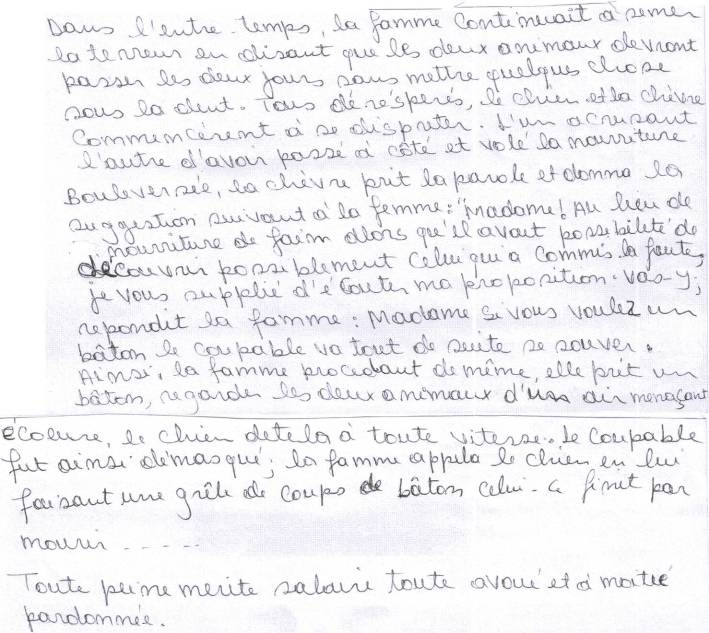 Dans l'entre-temps, la famme continuait à semer
la terreur en disant que les deux animaux devront
passer les deux jours sans mettre quelques chose
sous la dent. Tous dé résperés, le chien et la chèvre
commencèrent à se dispreter. L'un acrusant
l'autre d'avoir passé à côté et volé la nourriture
Bouleversée, la chèvre prit la parole et donna la
suggestion suivant à la femme: "Madame! Au lieu de
nourriture de faim alors qu'il avait possibilité de
découvrir possiblement celui qui a commis la faute,
je vous supplié d'écouter ma proposition. Vas-y;
repondit la famme: Madame si vous voulez un
bâton le coupable va tout de suite se sauver.
Ainsi, la famme procedant de même, elle prit un
bâton, regarder les deux animaux d'un air menaçant
écoeure, le chien detela à toute vitesse. Le coupable
fut ainsi démasqué; la famme appela le chien en lui
faisant une grêle de coups de bâton celui-ci finit par
mourir - - - - -
Toute peine merite salaire toute avoué et à moitié
pardonnée.